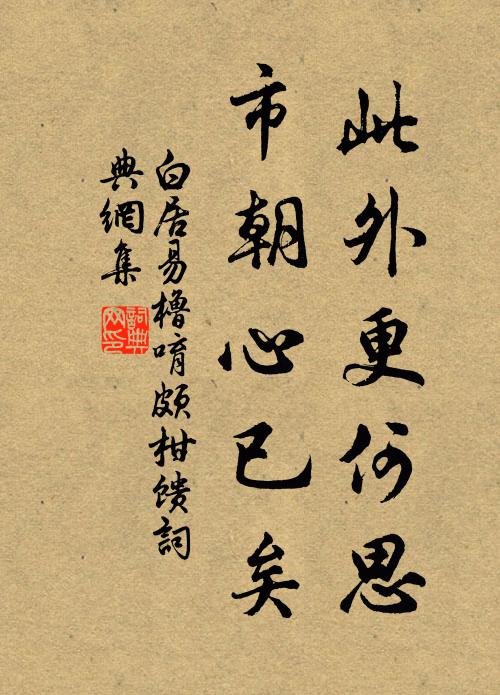 此外更何思
市朝心已矣
白居易橹唷颇柑馈詞
典網集
詞典網印